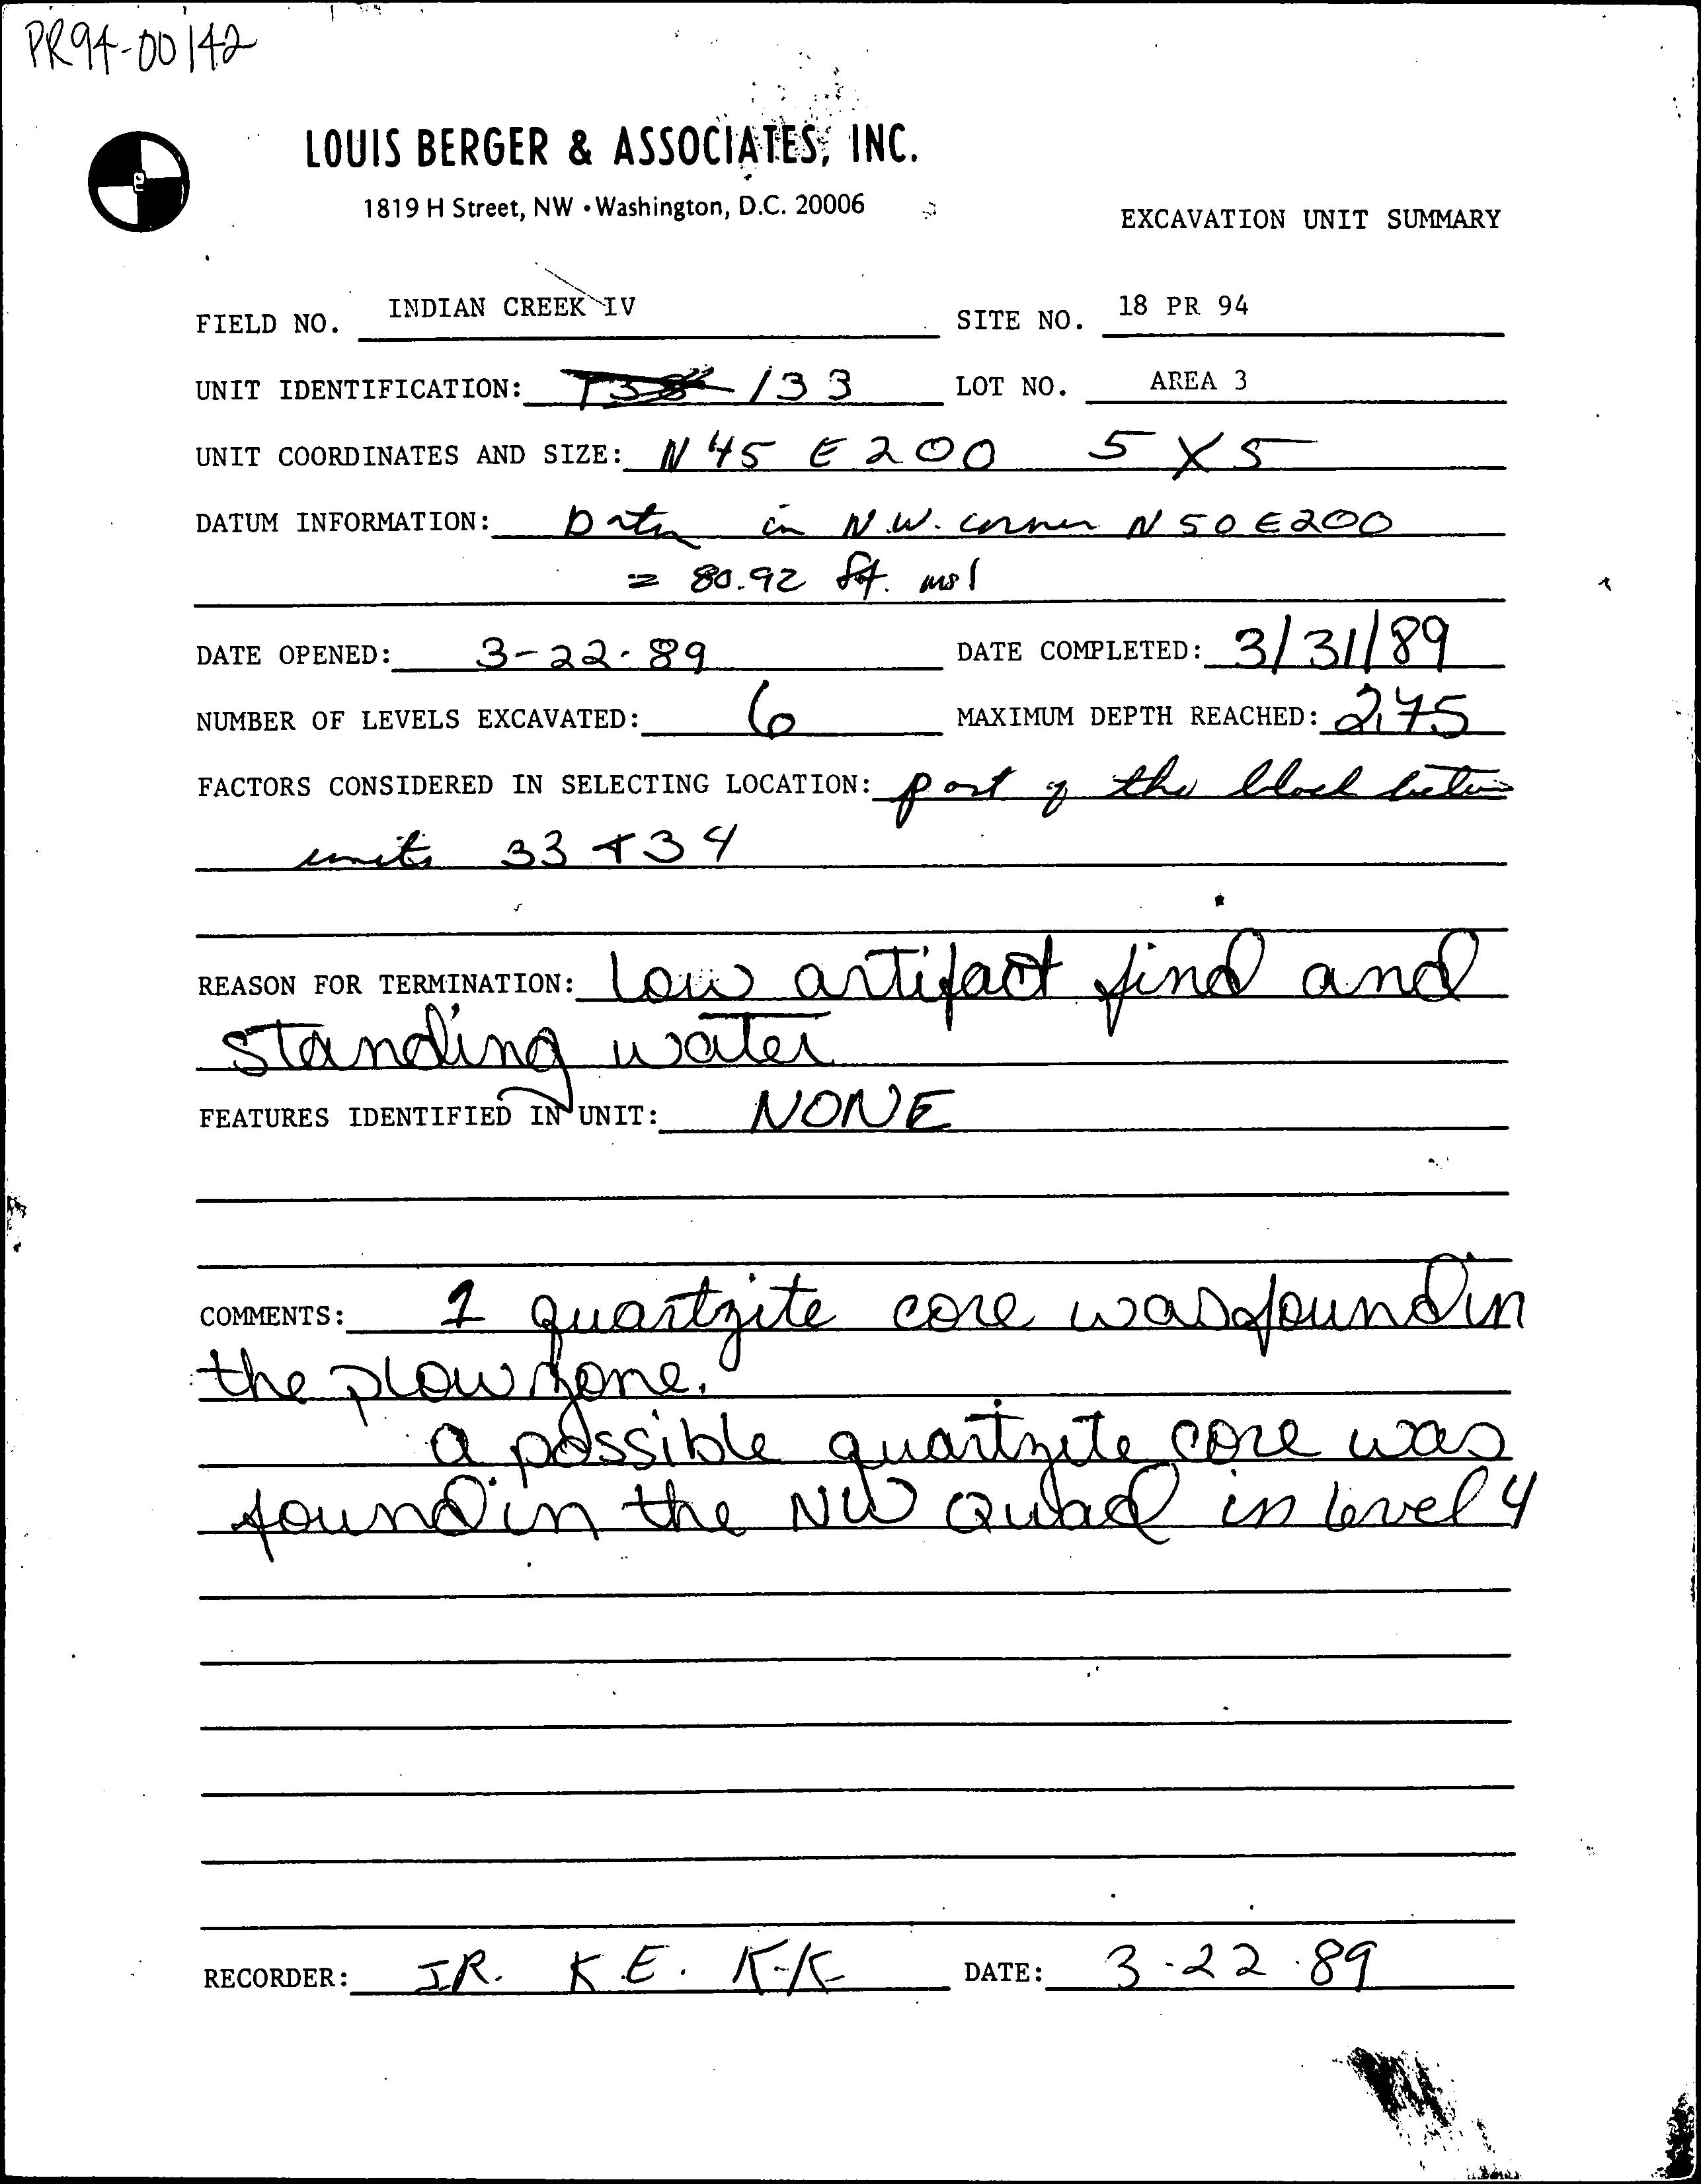 PR94-00142
LOUIS BERGER & ASSOCIATES, INC.
1819 H Street, NW • Washington, D.C. 20006
EXCAVATION UNIT SUMMARY
FIELD NO. INDIAN CREEK IV SITE NO. 18 PR 94
UNIT IDENTIFICATION: 133 LOT NO. AREA 3
UNIT COORDINATES AND SIZE: N 45 E 200 5 X 5
DATUM INFORMATION: Datum in N.W. corner N 50 E200
= 80.92 ft. msl
DATE OPENED: 3-22-89 DATE COMPLETED: 3/31/89
NUMBER OF LEVELS EXCAVATED: 6 MAXIMUM DEPTH REACHED: 2.75
FACTORS CONSIDERED IN SELECTING LOCATION: part of the block between
units 33 + 34
REASON FOR TERMINATION: Low artifact find and
standing water
FEATURES IDENTIFIED IN UNIT: NONE
COMMENTS: 1 quartzite core was found in
the plow zone.
a possible quartzite core was
found in the NW Quad in level 4
RECORDER: J.R. K.E. K.K. DATE: 3-22-89